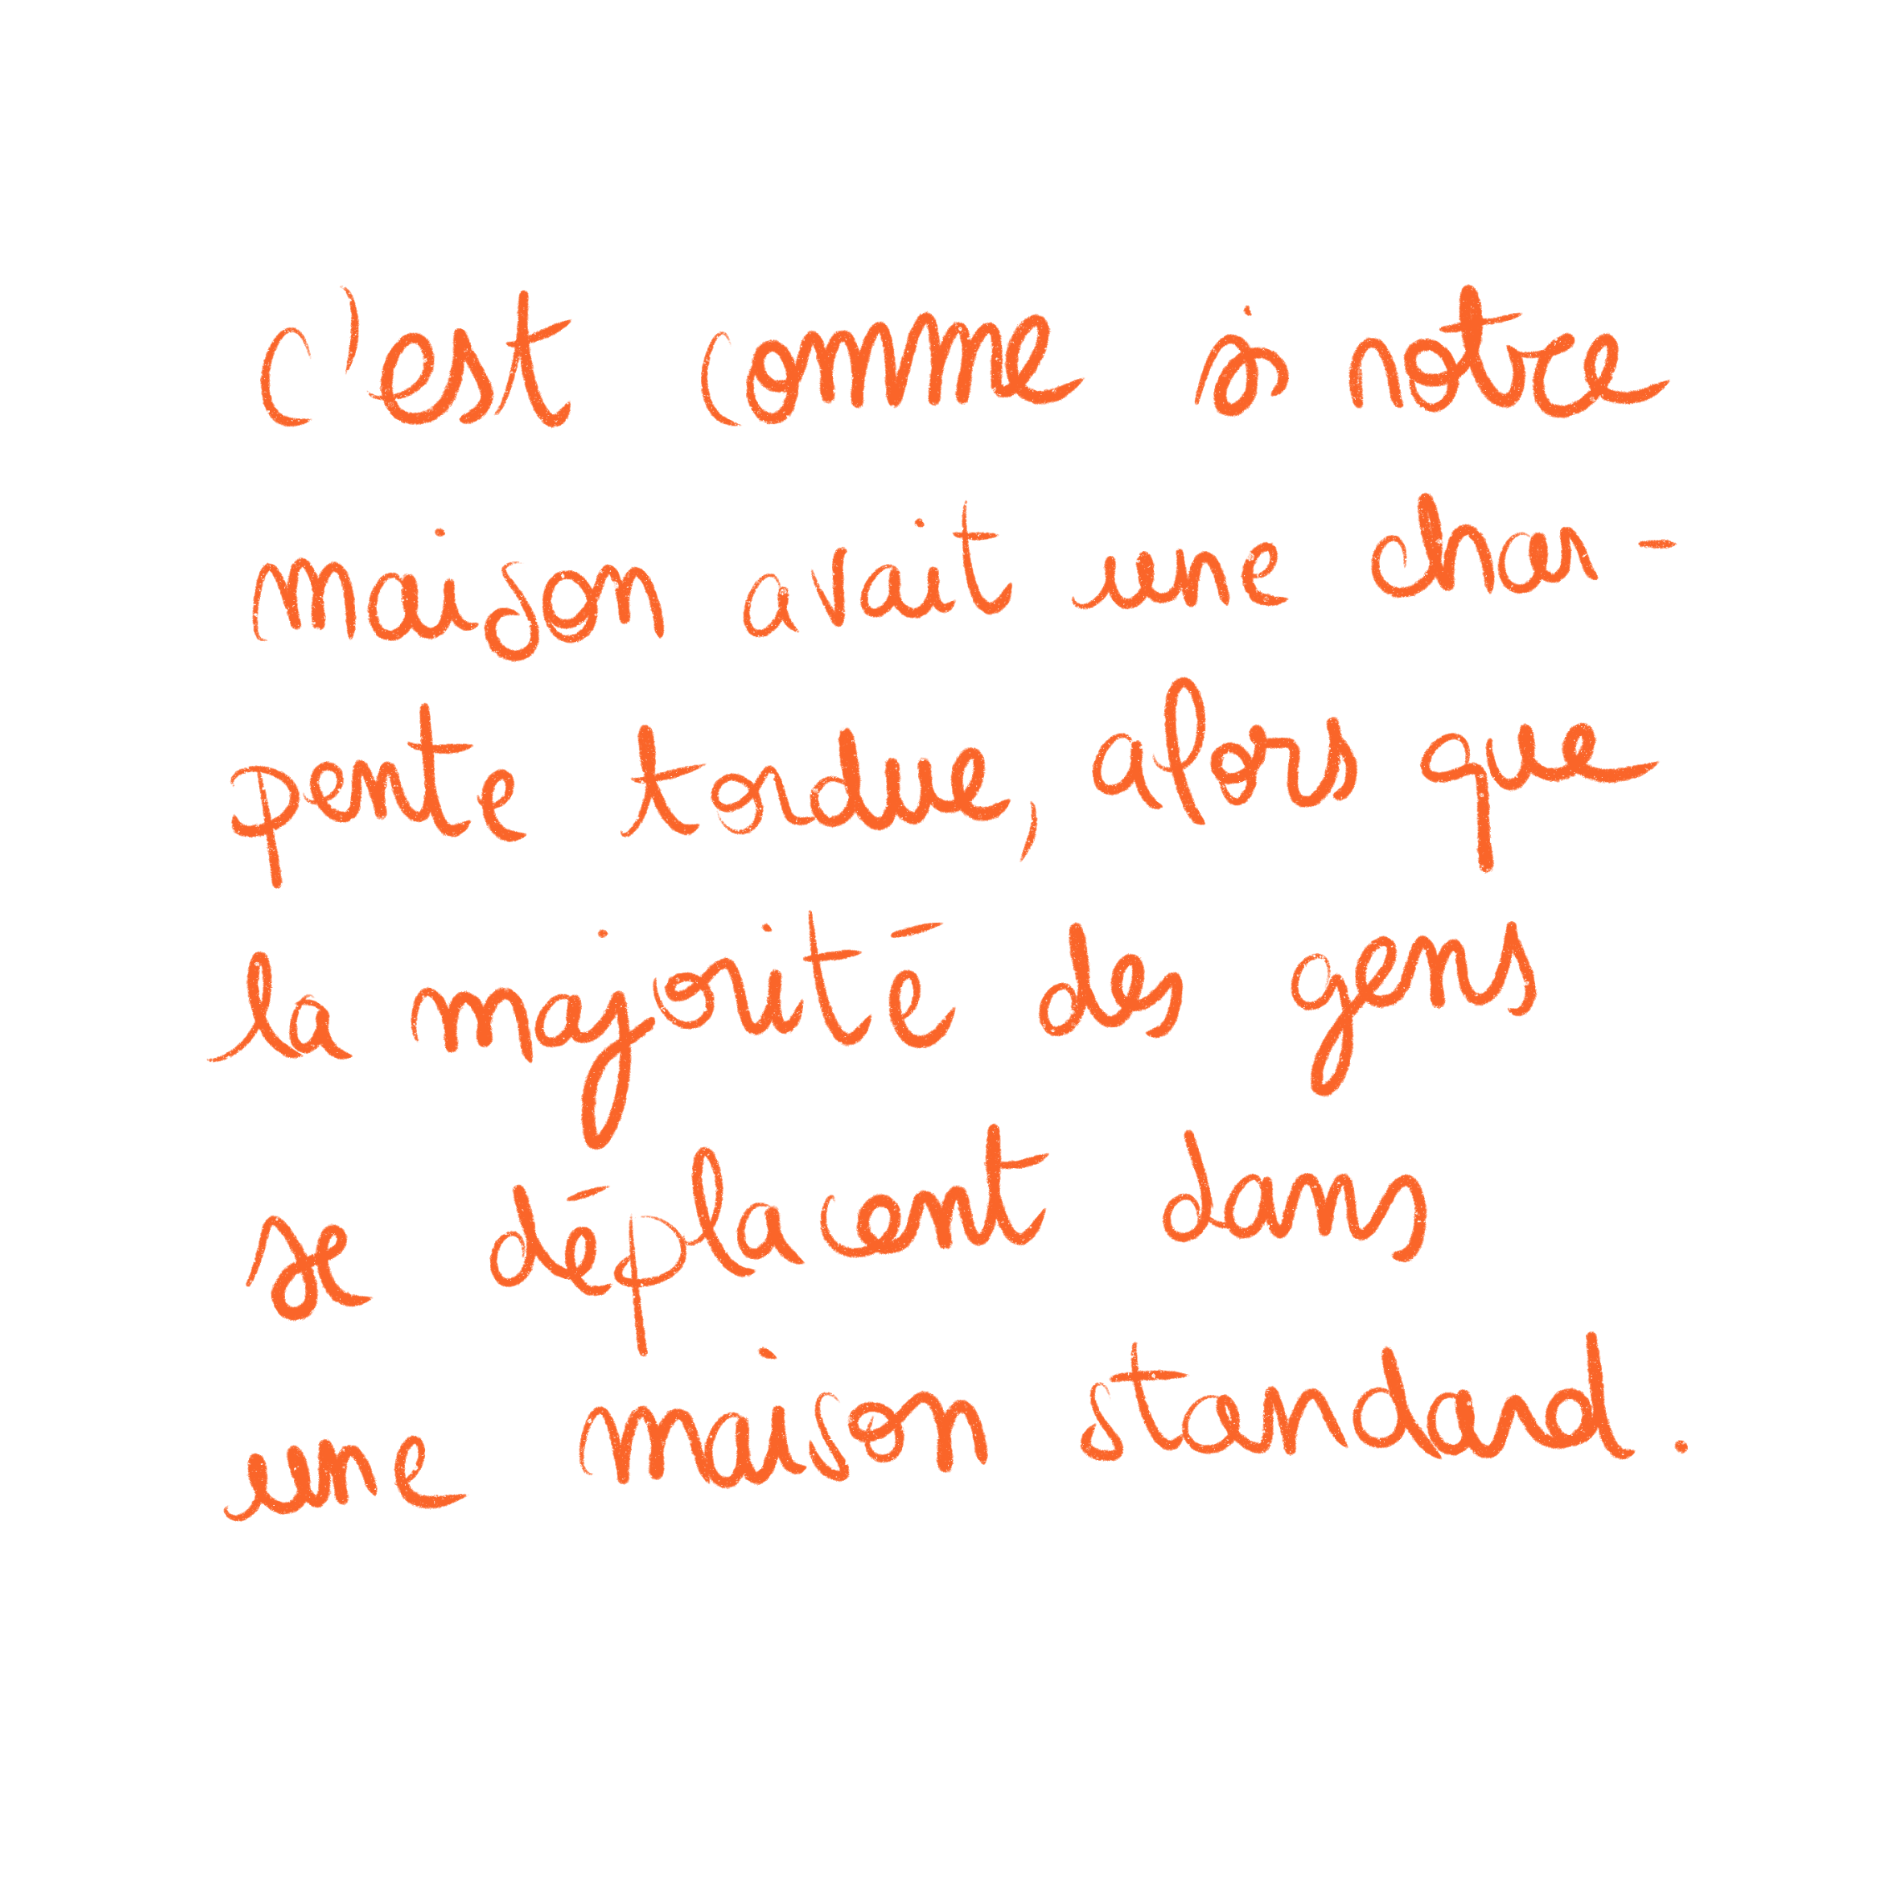 c'est comme si notre
maison avait une char-
pente tordue, alors que
la majorité des gens
se déplacent dans
une maison standard.